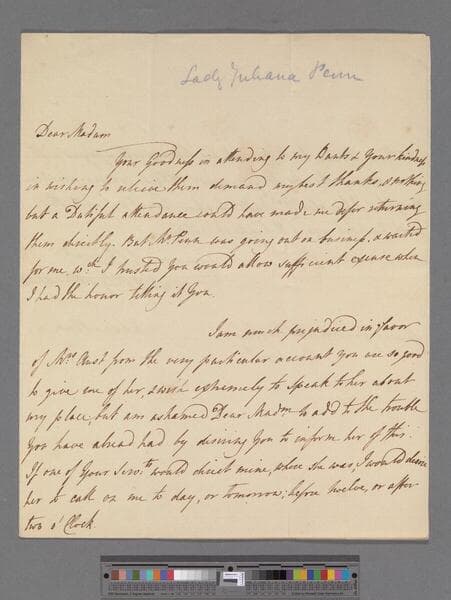 Lady Juliana Penn
Dear Madam
Your Goodness in attending to my Wants & Your kindness
in wishing to relieve them demand my best thanks, & nothing
but a Dutiful attendance could have made me defer returning
them directly. But Mr Penn was going out on business, & waited
for me, wch I trusted You would allow sufficient excuse when
I had the honor telling it You.
I am much prejudiced in favor
of Mrs Aust from the very particular account you are so good
to give me of her, & wish extremely to speak to her about
my place, but am ashamed Dear Madm to add to the trouble
You have alread had by desiring You to inform her of this.
If one of Your Servts would direct mine, where She was, I would desire
her to call on me to day, or tomorrow; before twelve, or after
two o'Clock